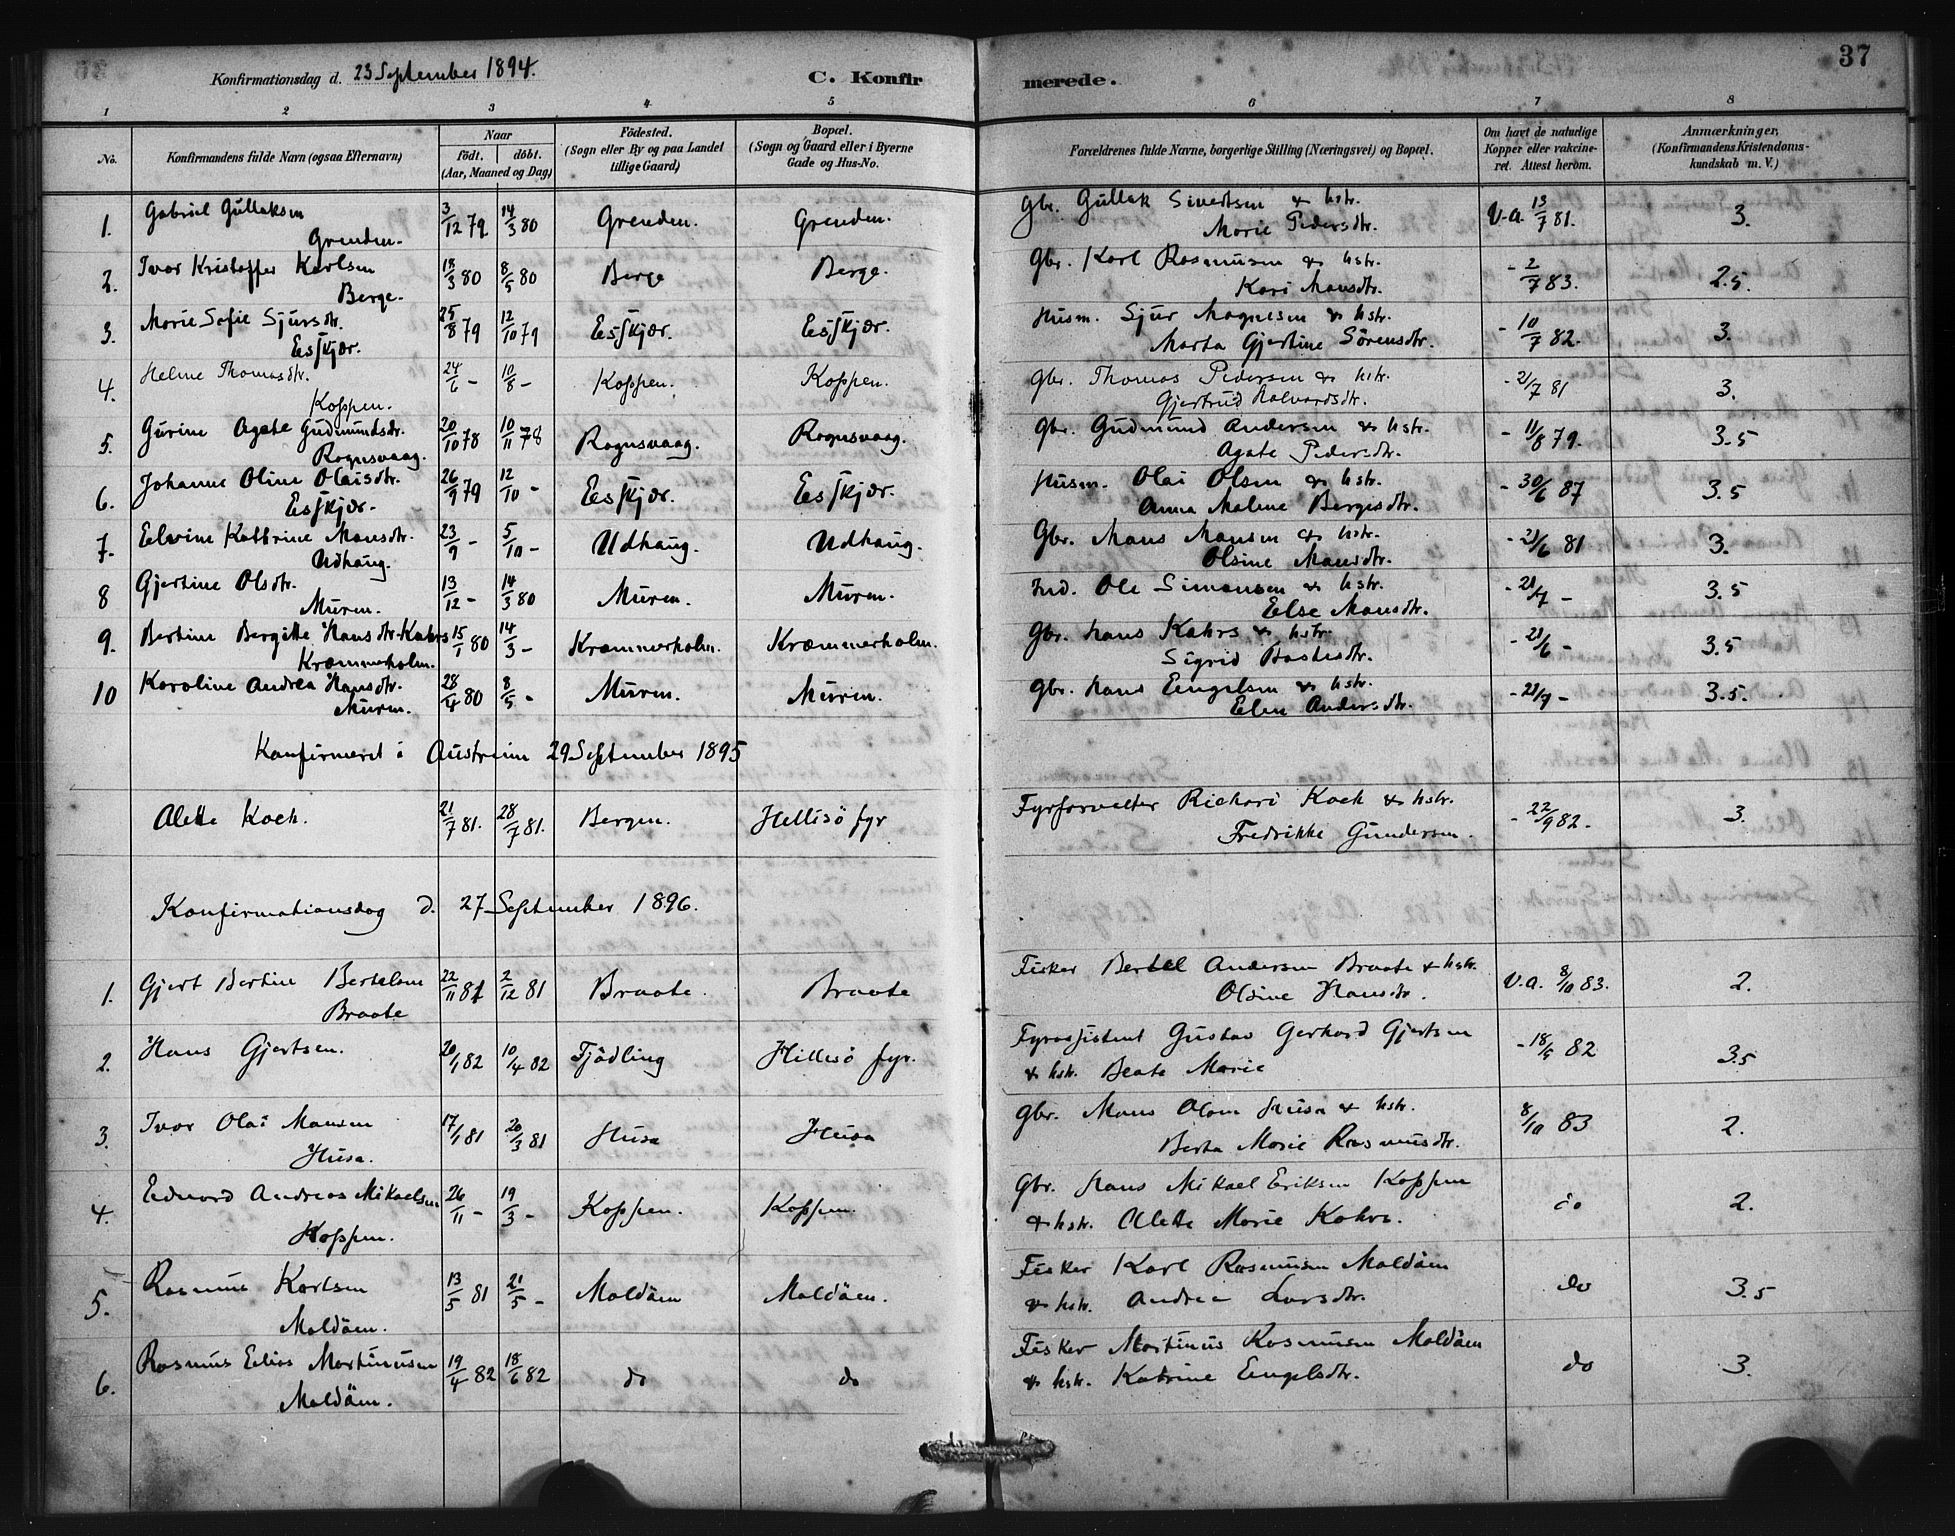 37
Konfirmationsdag d. 23 September 1894. C. Konfirmerede.
1 2 3 4 5 6 7 8
No. Konfirmandens fulde Navn (ogsaa Efternavn) Naar födt. döbt. (Aar, Maaned og Dag) Födested. (Sogn eller By og paa Landet tillige Gaard) Bopæl. (Sogn og Gaard eller i Byerne Gade og Hus-No.) Forældrenes fulde Navne, borgerlige Stilling (Næringsvei) og Bopæl. Om havt de naturlige Kopper eller vakcineret. Attest herom. Anmærkninger, (Konfirmandens Kristendomskundskab m. V.)
1. Gabriel Gullaksen Grenden. 3/12 79 14/3 80 Grenden. Grenden. Gbr. Gullak Sivertsen & hstr. Marie Pedersdtr. V.a. 13/7 81. 3.
2. Ivar Kristoffer Karlsen Berge. 18/3 80 8/5 80 Berge Berge. Gbr. Karl Rasmussen & hstr. Kari Mansdtr. - 2/7 83. 2.5.
3. Marie Sofie Sjursdtr. Eesskjær. 25/8 79 12/10 79 Eesskjær. Eesskjær. Husm. Sjur Magnesen & hstr. Marta Gjertine Sörensdtr. - 10/7 82. 3.
4. Helene Thomasdtr. Koppen. 24/6 - 10/8 - Koppen. Koppen. Gbr. Thomas Pedersen & hstr. Gjertrud Halvardsdtr. - 2/7 81 3.
5. Gurine Agate Gudmundsdtr. Rognsvaag. 20/10 78 10/11 78 Rognsvaag. Rognsvaag. Gbr. Gudmund Andersen & hstr. Agate Pedersdtr. - 11/8 79. 3.5
6. Johanne Oline Olaisdtr. Eesskjær. 26/9 79 12/10 - Eesskjær. Eesskjær. Husm. Olai Olsen & hstr. Anna Malene Bergesdtr. - 30/6 87 3.5
7. Eelvine Kathrine Mansdtr. Udhaug. 23/9 - 5/10 - Udhaug. Udhaug. Gbr. Mans Mansen & hstr. Olsine Mansdtr. - 21/6 81 3.
8 Gjertine Olsdtr. Muren. 13/12 - 14/3 80 Muren. Muren. Ind. Ole Simonsen & hstr. Else Mansdtr. - 21/7 - 3.5
9. Bertine Bergitte Hansdtr. Kahrs Kræmmerholm. 15/1 80 14/3 - Kræmmerholm. Kræmmerholm. Gbr. Hans Kahrs & hstr. Sigrid - 21/6 - 3.5
10 Karoline Andrea Hansdtr. Muren. 28/4 80 8/5 - Muren. Muren. Gbr. Hans Eengelsen & hstr. Elen Andersdtr. - 21/7 - 3.5.
Konfirmeret i Austreim 29 September 1895
Alette Koch. 21/7 81. 28/7 81. Bergen. Hellisö fyr Fyrforvalter Richard Koch & hstr. Fredrikke Gundersen. - 22/9 82. 3.
Konfirmationsdag d. 27 September 1896.
1. Gjert Bertine Bertelsen Braate 22/11 81 2/12 81 Braate. Braate Fisker Bertel Andersen Braate & hstr. Olsine Hansdtr. V.a. 8/10 83. 2.
2. Hans Gjertsen. 20/1 82 10/4 82 Fjödling Hillesö fyr. Fyrassistent Gustav Gerhard Gjertsen & hstr. Beate Marie - 18/5 82 3.5
3. Ivar Olai Mansen Husa. 17/1 81 20/3 81 Husa Husa Gbr. Mans Olsen Husa & hstr. Berta Marie Rasmusdtr. 8/10 83 2.
4. Edvard Andreas Mikaelsen Koppen. 26/11 - 19/3 - Koppen. Koppen. Gbr. Hans Mikael Eriksen Koppen & hstr. Alette Marie Kahrs. do 2.
5. Rasmus Karlsen Maldöen. 13/5 81 21/5 - Maldöen Maldöen. Fisker Karl Rasmussen Maldöen & hstr. Andrea Larsdtr. do 3.5
6. Rasmus Eelias Martinusen Maldöen. 19/4 82 18/6 82 do do Fisker Martinus Rasmusen Maldöen & hstr. Katrine Eengelsdtr. do 3.